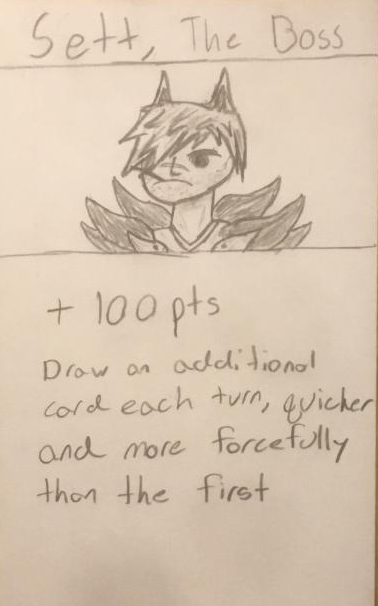 Sett, The Boss
+ 100 pts
Draw an additional
card each turn, quicker
and more forcefully
than the first